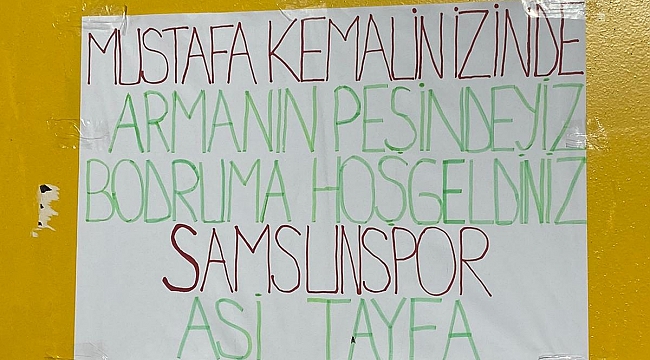 MUSTAFA KEMALİN İZİNDE
ARMANIN PEŞİNDEYİZ
BODRUMA HOŞGELDİNİZ
SAMSUNSPOR
ASİ TAYFA